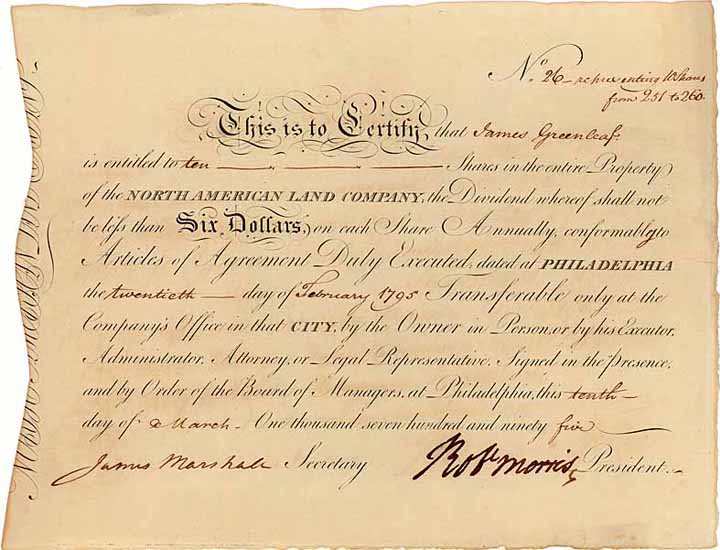 No. 26 — representing 10 Shares
from 251 to 260.
This is to Certify, that James Greenleaf
is entitled to ten Shares in the entire Property
of the NORTH AMERICAN LAND COMPANY; the Dividend whereof shall not
be leſs than Six Dollars, on each Share Annually, conformably to
Articles of Agreement Duly Executed; dated at PHILADELPHIA
the twentieth day of February 1795 Transferable only at the
Company's Office in that CITY, by the Owner in Person, or by his Executor,
Administrator, Attorney, or Legal Representative. Signed in the Presence,
and by Order of the Board of Managers, at Philadelphia, this tenth
day of March One thousand seven hundred and ninety five
James Marshall Secretary Robt Morris President.